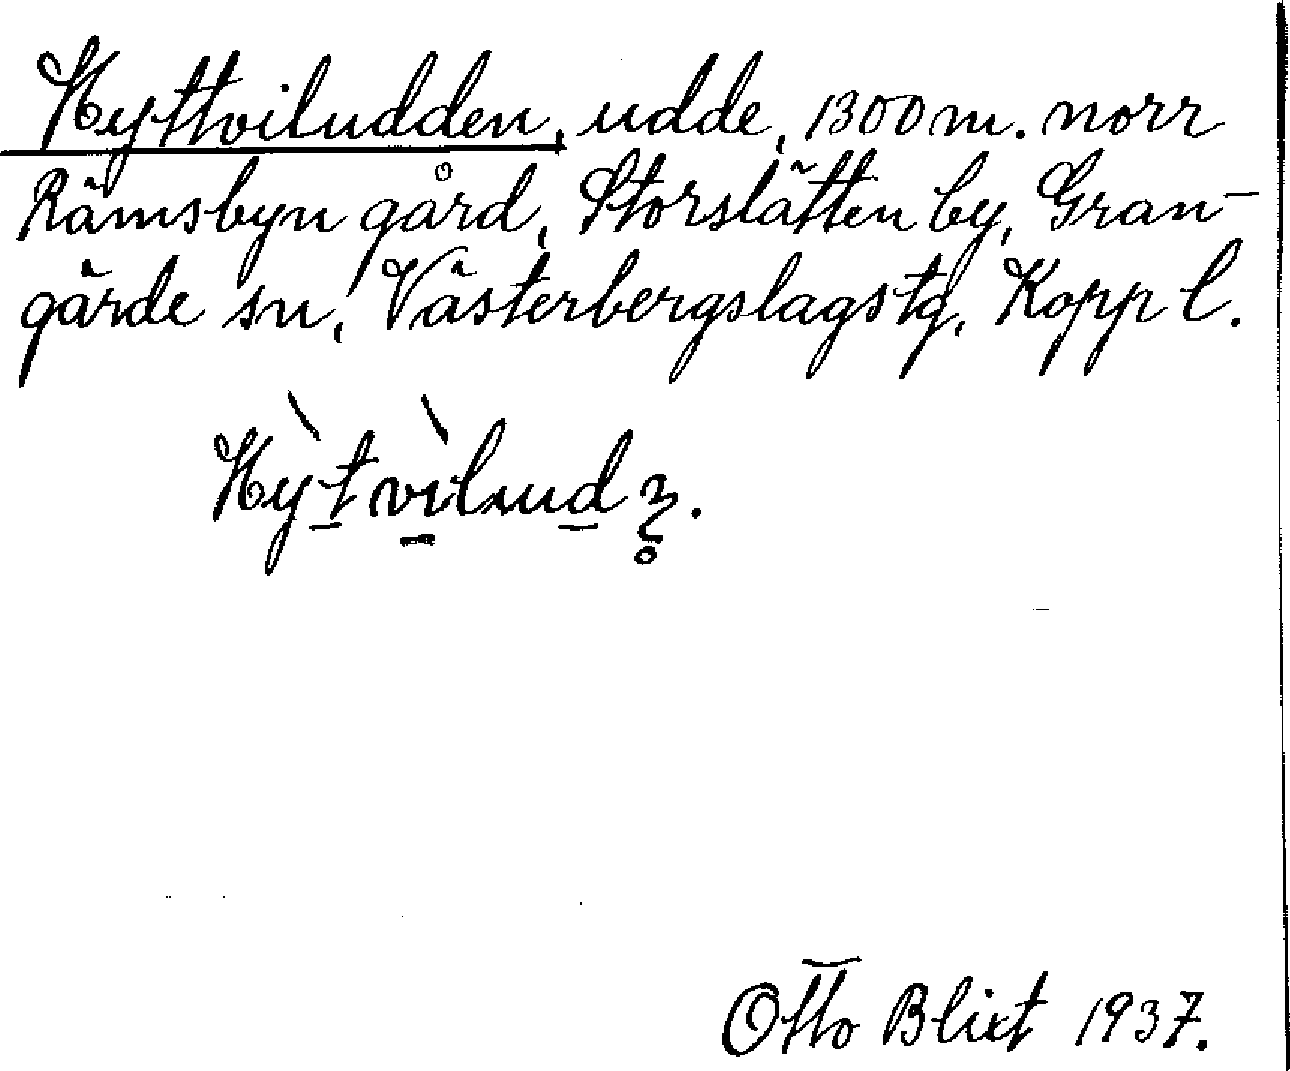 Hyttviludden, udde, 1300 m. norr
Rämsbyn gård, Storslätten by, Gran-
gärde sn, Västerbergslags tg, Kopp l.
Hỳt̲vì̲lud̲n̥.
Otto Blixt 1937.